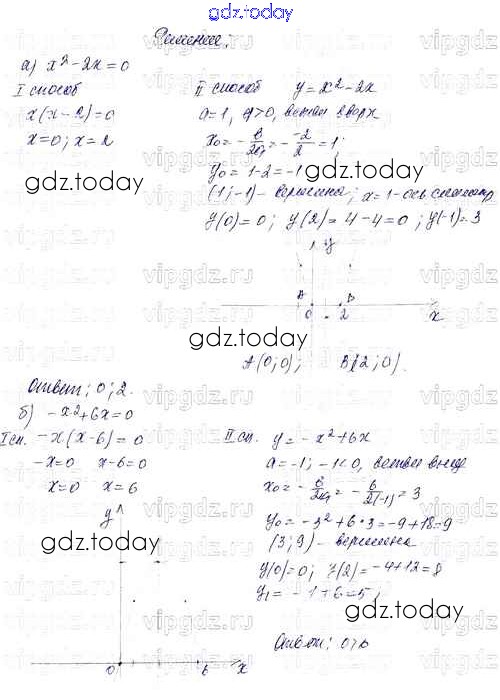 gdz.today
Решение:
а) x² - 2x = 0
I способ
x(x - 2) = 0
x = 0; x = 2
II способ y = x² - 2x
a = 1, a > 0, ветви вверх
x₀ = -в/2a = - -2/2 = 1;
y₀ = 1 - 2 = -1
(1; -1) - вершина; x = 1 - ось
y(0) = 0; y(2) = 4 - 4 = 0; y(-1) = 3
gdz.today
y
A B
0 2 x
gdz.today
A(0; 0); B(2; 0).
Ответ: 0; 2.
б) -x² + 6x = 0
I сп. -x(x - 6) = 0
-x = 0 x - 6 = 0
x = 0 x = 6
II сп. y = -x² + 6x
a = -1; -1 < 0, ветви вниз
x₀ = -в/2a = - 6/2(-1) = 3
y₀ = -3² + 6·3 = -9 + 18 = 9
(3; 9) - вершина
y(0) = 0; y(2) = -4 + 12 = 8
y₁ = -1 + 6 = 5;
gdz.today
y
0 6 x
gdz.today
Ответ:
vipgdz.ru